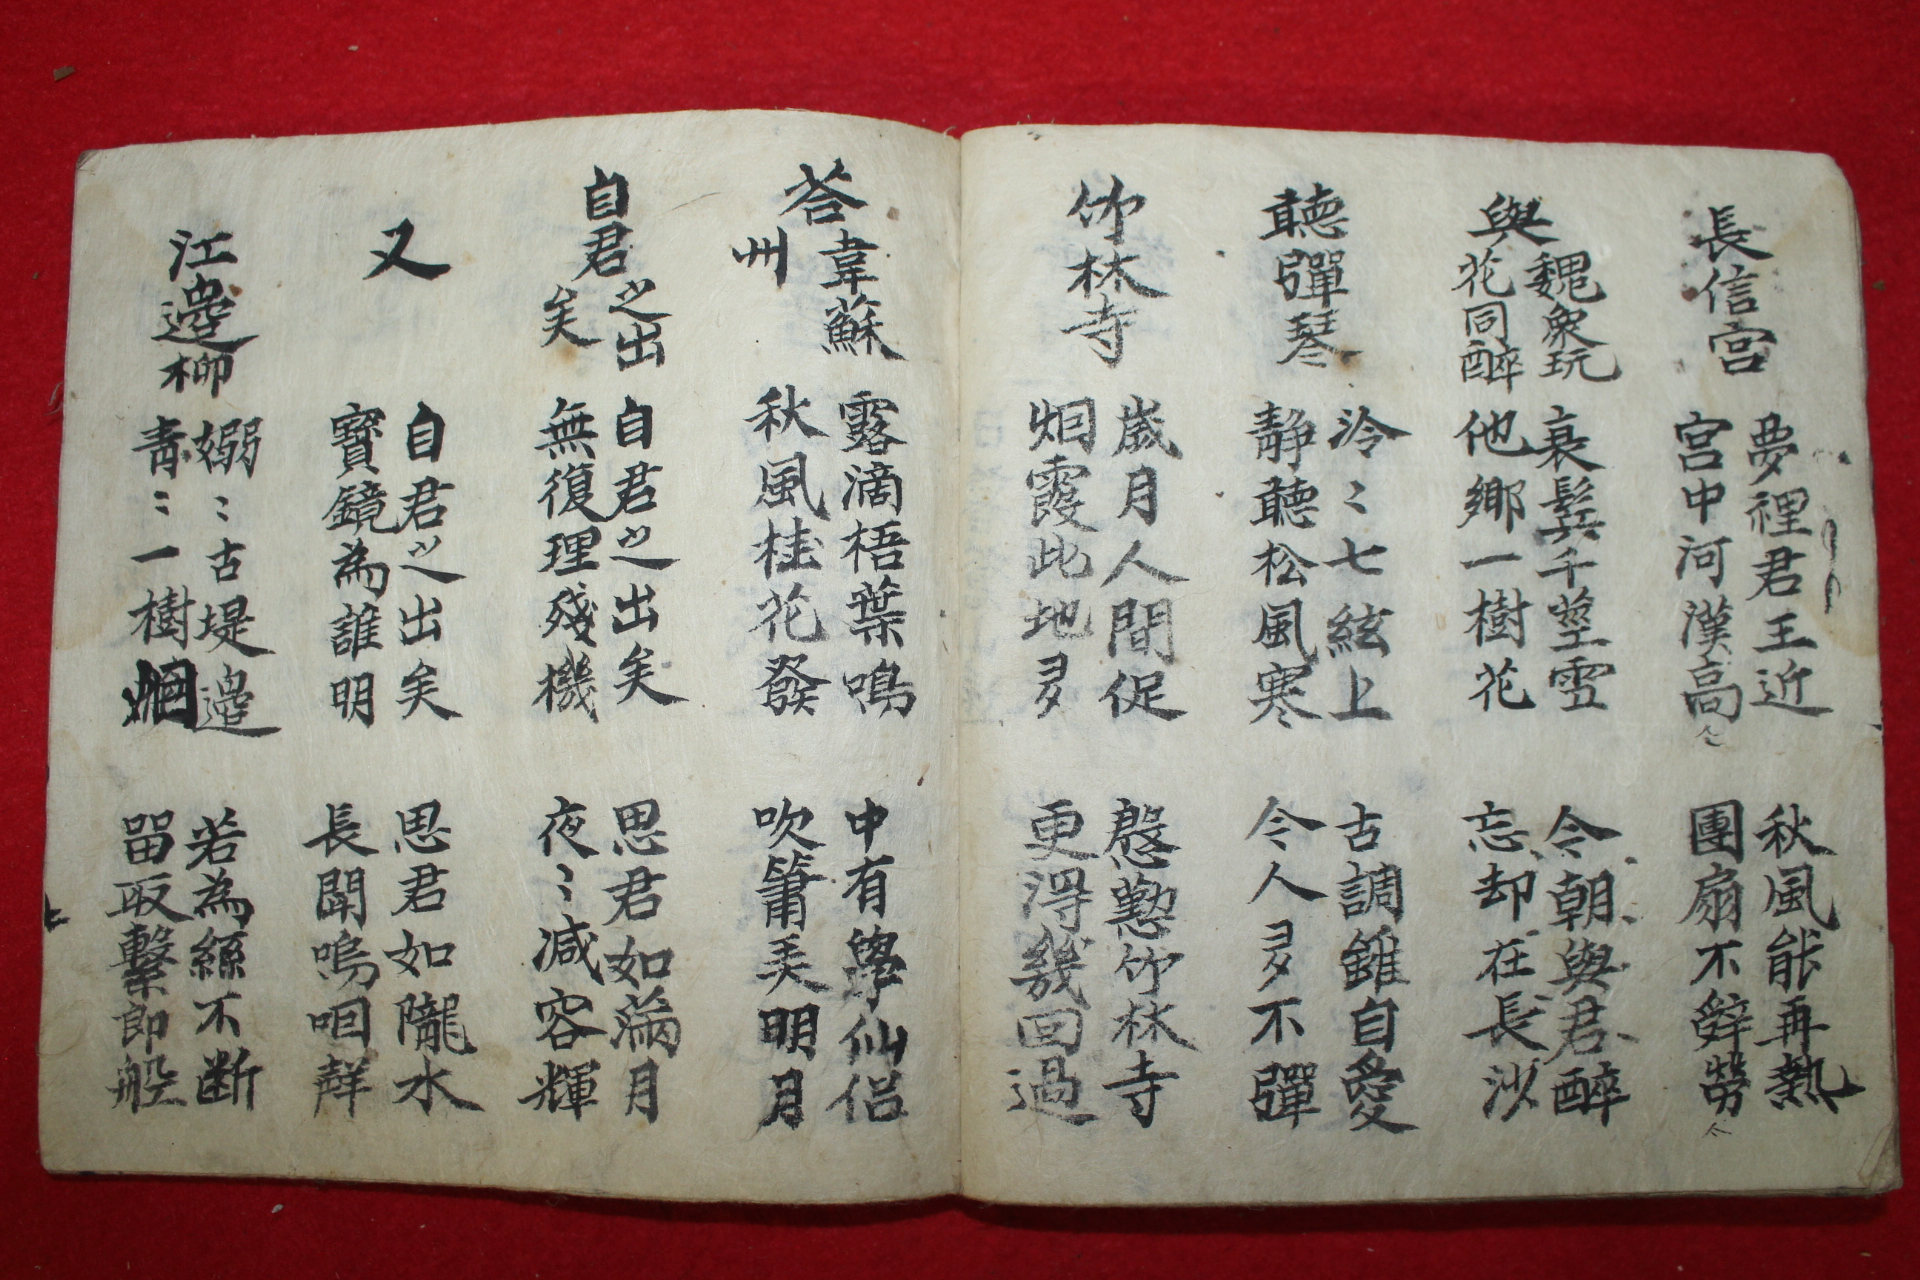 長信宮
夢裡君王近
宮中河漢高
秋風能再熱
團扇不辤勞
與魏衆玩
花同醉
衰鬂千莖雪
他鄉一樹花
今朝與君醉
忘却在長沙
聽彈琴
泠〻七絃上
静聽松風寒
古調雖自愛
今人多不彈
竹林寺
歲月人間促
烟霞此地多
慇懃竹林寺
更淂幾回過
荅韋蘇
州
露滴梧葉鳴
秋風桂花發
中有學仙侣
吹簫弄明月
自君之出
矣
自君之出矣
無復理殘機
思君如滿月
夜〻减容輝
又
自君之出矣
寳鏡為誰明
思君如隴水
長聞嗚咽聲
江邉柳
嫋〻古堤邉
青〻一樹烟
若為絲不断
留取繫郎舩